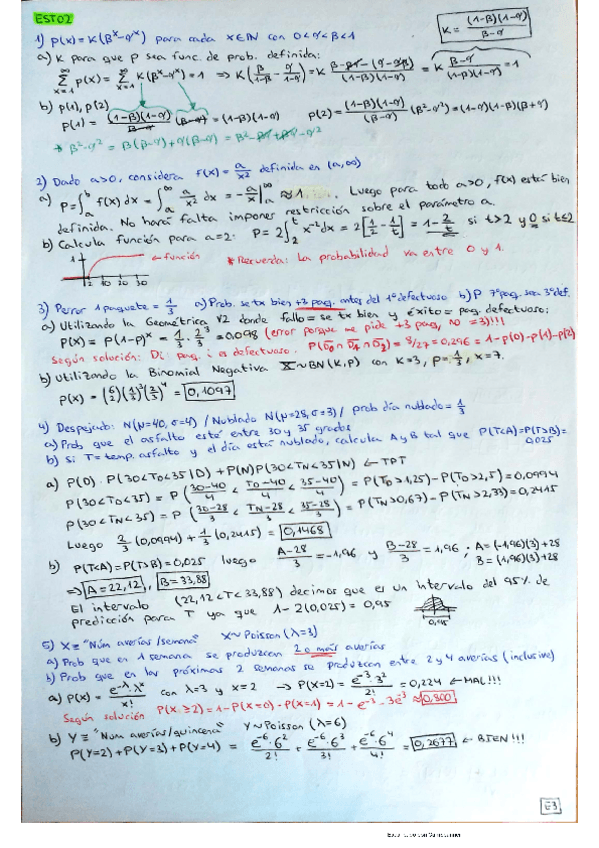 EST02
1) p(x) = K(β^x - α^x) para cada x∈ℕ con 0<α<β<1
K = (1-β)(1-α) / (β-α)
a) K para que p sea func. de prob. definida:
∑_{x=1}^∞ p(x) = ∑_{x=1}^∞ K(β^x - α^x) = 1 ⇒ K(β/(1-β) - α/(1-α)) = K (β-βα-(α-αβ))/((1-β)(1-α)) = K (β-α)/((1-β)(1-α)) = 1
b) p(1), p(2)
p(1) = (1-β)(1-α)/(β-α) (β-α) = (1-β)(1-α) p(2) = (1-β)(1-α)/(β-α) (β²-α²) = (1-α)(1-β)(β+α)
* β²-α² = β(β-α)+α(β-α) = β²-βα+βα-α²
2) Dado a>0, considera f(x) = a/x² definida en (a,∞)
a) P = ∫_a^b f(x) dx = ∫_a^∞ a/x² dx = -a/x |_a^∞ ≈ 1 .... Luego para todo a>0, f(x) está bien
definida. No hará falta imponer restricción sobre el parámetro a.
b) Calcula función para a=2: P = 2∫_2^t x^-2 dx = 2[1/2 - 1/t] = 1 - 2/t si t>2 y 0 si t≤2
1 ← función * Recuerda: La probabilidad va entre 0 y 1.
12 10 20 30
3) Perror 1 paquete = 1/3 a) Prob. se tx bien +3 paq. antes del 1º defectuoso b) P 7º paq. sea 3º def.
a) Utilizando la Geométrica V2 donde fallo = se tx bien y éxito = paq. defectuoso:
P(X) = P(1-P)^x = 1/3 · 2/3^3 = 0.098 (error porque me pide +3 paq, no =3)!!!
Según solución: Di paq. i es defectuoso. P(D̄0∩D̄1∩D̄2) = 8/27 = 0,296 = 1-p(0)-p(1)-p(2)
b) Utilizando la Binomial Negativa X∼BN(K,P) con K=3, P=1/3, x=7.
P(X) = (6 2)(1/3)^3(2/3)^4 = 0,1097
4) Despejado: N(μ=40, σ=4) / Nublado N(μ=28, σ=3) / prob día nublado = 1/3
a) Prob que el asfalto esté entre 30 y 35 grados
b) Si T = temp. asfalto y el día está nublado, calcula A y B tal que P(T<A)=P(T>B)=
0,025
a) P(D)·P(30<TD<35|D) + P(N)P(30<TN<35|N) ← TPT
P(30<TD<35) = P(30-40/4 < TD-40/4 < 35-40/4) = P(TD>1,25)-P(TD>2,5) = 0,0994
P(30<TN<35) = P(30-28/3 < TN-28/3 < 35-28/3) = P(TN>0,67)-P(TN>2,33) = 0,2415
Luego 2/3 (0,0994) + 1/3 (0,2415) = 0,1468
b) P(T<A)=P(T>B)=0,025 luego A-28/3 = -1,96 y B-28/3 = 1,96 ; A=(-1,96)(3)+28
B=(1,96)(3)+28
⇒ A=22,12, B=33,88
El intervalo (22,12<T<33,88) decimos que es un intervalo del 95% de
predicción para T ya que 1-2(0,025) = 0,95
0,95
5) X≡"Núm averías/semana" X∼Poisson (λ=3)
a) Prob que en 1 semana se produzcan 2 o más averías
b) Prob que en las próximas 2 semanas se produzcan entre 2 y 4 averías (inclusive)
a) P(X) = e^-λ·λ^x / x! con λ=3 y x=2 → P(X=2) = e^-3·3² / 2! = 0,224 ← MAL!!!
Según solución P(X≥2) = 1-P(X=0)-P(X=1) = 1-e^-3-3e^-3 ≈ 0,800
b) Y≡"Núm averías/quincena" Y∼Poisson (λ=6)
P(Y=2)+P(Y=3)+P(Y=4) = e^-6·6²/2! + e^-6·6³/3! + e^-6·6^4/4! = 0,2677 ← BIEN!!!
E3